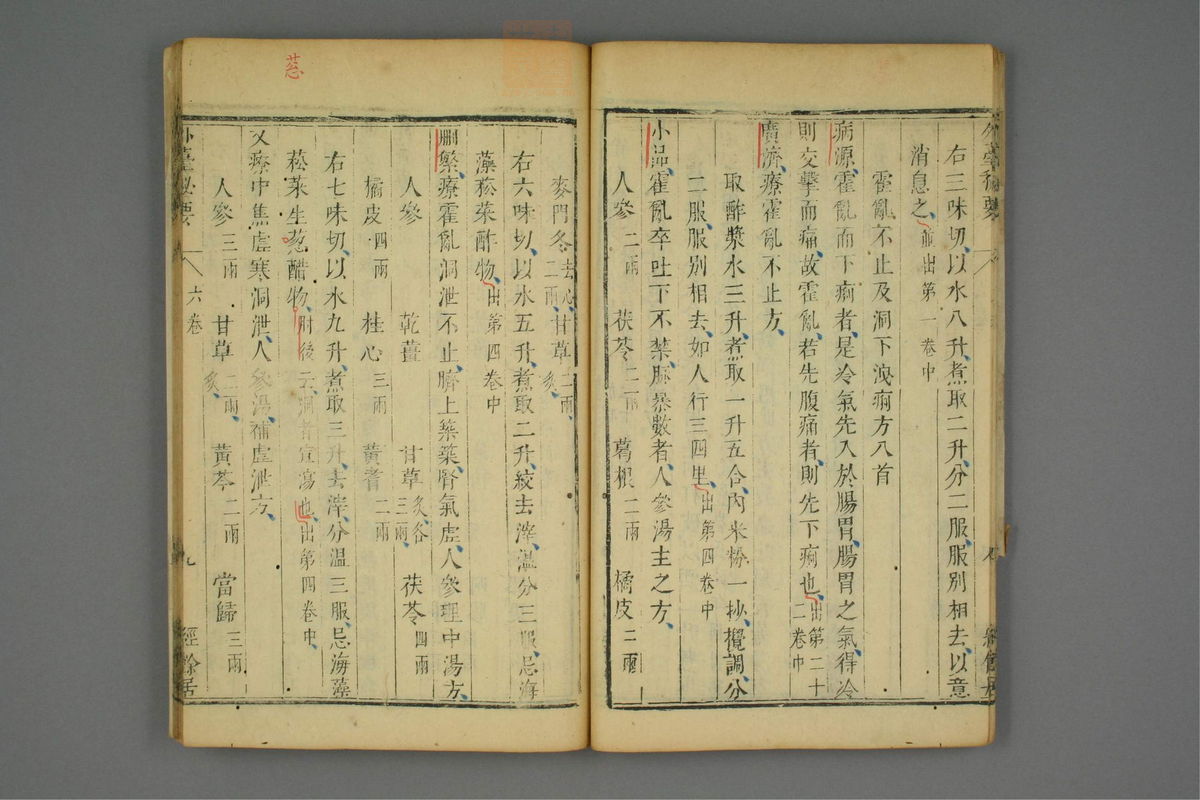 右三味切以水八升煮取二升分二服服別相去以意
消息之並出第一卷中
霍亂不止及洞下洩痢方八首
病源霍亂而下痢者是冷氣先入於腸胃腸胃之氣得冷
則交擊而痛故霍亂若先腹痛者則先下痢也出第二十二卷中
廣濟療霍亂不止方
取酢漿水三升煮取一升五合內米粉一抄攪調分
二服服別相去如人行三四里出第四卷中
小品霍亂卒吐下不禁脈暴數者人參湯主之方
人參二兩 茯苓二兩 葛根二兩 橘皮二兩
麥門冬去心二兩 甘草二兩炙
右六味切以水五升煮取二升絞去滓溫分三服忌海
藻菘菜酢物出第四卷中
刪繁療霍亂洞泄不止臍上築築腎氣虛人參理中湯方
人參 乾薑 甘草炙各三兩 茯苓四兩
橘皮四兩 桂心三兩 黃耆二兩
右七味切以水九升煮取三升去滓分溫三服忌海藻
菘菜生蔥醋物肘後云洞者宣瀉也出第四卷中
又療中焦虛寒洞泄人參湯補虛泄方
人參三兩 甘草二兩炙 黃芩二兩 當歸三兩
外臺秘要 六卷 九 經餘居